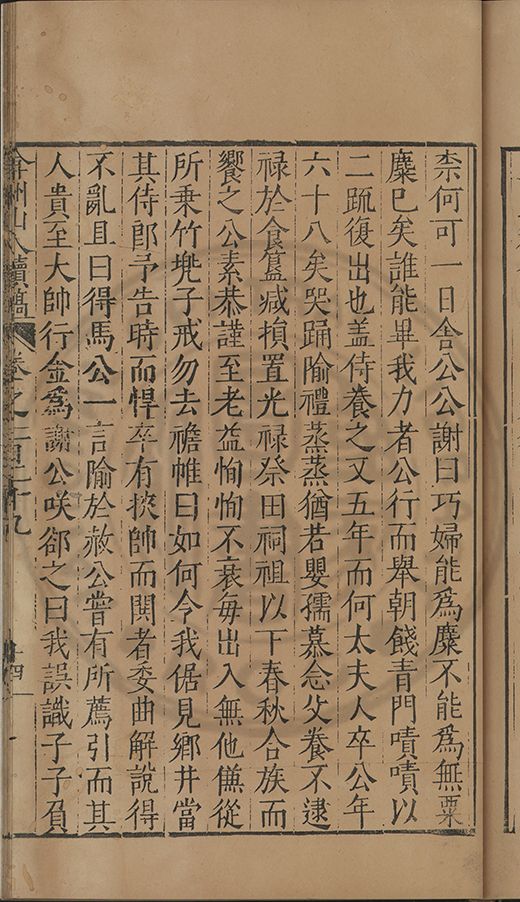 柰何可一日舍公公謝曰巧婦能爲麋不能爲無粟
麋巳矣誰能畢我力者公行而舉朝餞青門嘖嘖以
二䟽復出也盖侍養之又五年而何太夫人卒公年
六十八矣哭踊隃禮蒸蒸猶若嬰孺慕念父養不逮
禄於食簋减損置光禄祭田祠祖以下春秋合族而
饗之公素恭謹至老益恂恂不衰每出入無他傔從
所乗竹兠子戒勿去襜帷曰如何令我倨見鄉井當
其侍郎予告時而悍卒有挾帥而鬨者委曲解說得
不亂且曰得馬公一言隃於赦公嘗有所薦引而其
人貴至大帥行金爲謝公咲郤之曰我誤識子子負
弇州山人續稿
卷之一百二十九